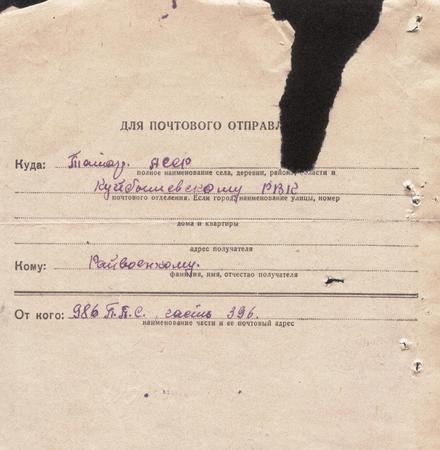 ДЛЯ ПОЧТОВОГО ОТПРАВЛ
Куда: Татар. АССР
полное наименование села, деревни, района, области и
Куйбышевскому РВК
почтового отделения. Если город, наименование улицы, номер
дома и квартиры
адрес получателя
Кому: Райвоенкому.
фамилия, имя, отчество получателя
От кого: 986 П.П.С. часть 396.
наименование части и ее почтовый адрес